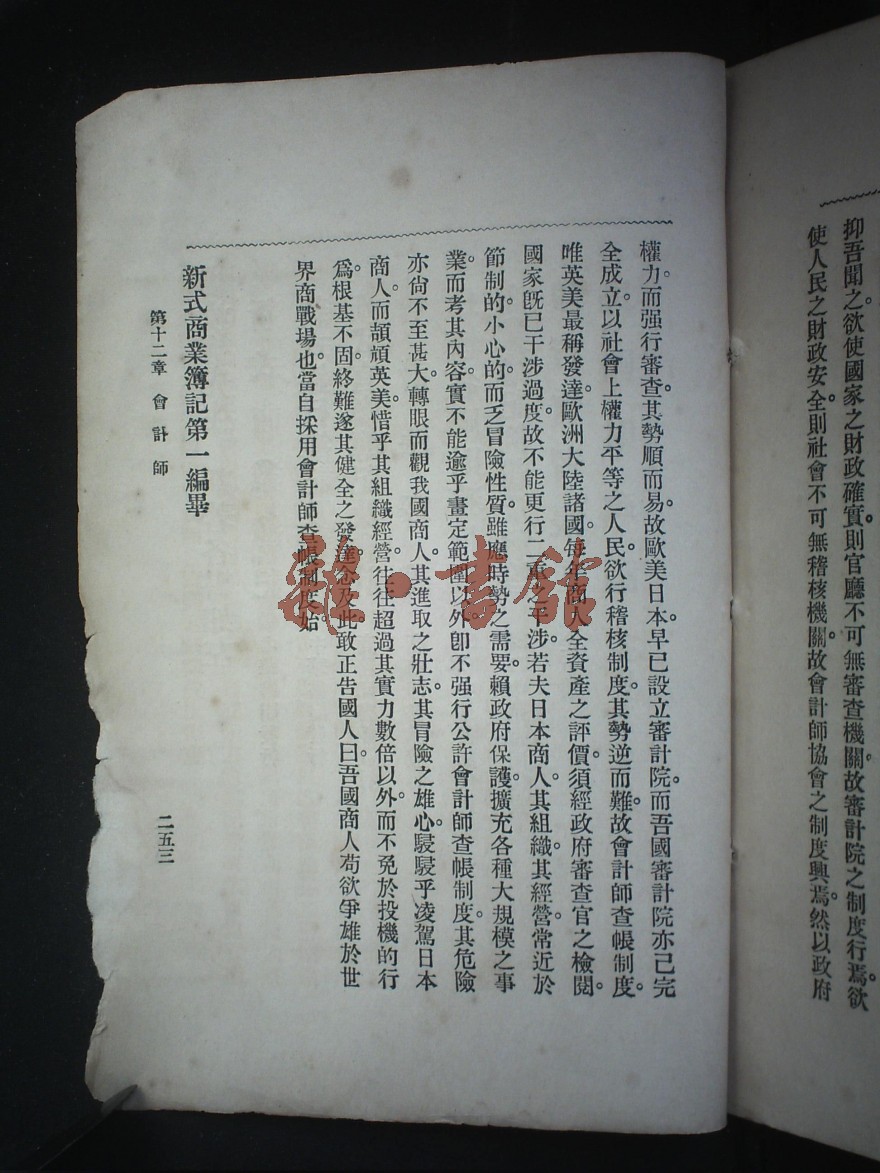 抑吾聞之欲使國家之財政確實則官廳不可無審查機關故審計院之制度行焉欲
使人民之財政安全則社會不可無稽核機關故會計師協會之制度興焉然以政府
權力而强行審查其勢順而易故歐美日本早已設立審計院而吾國審計院亦已完
全成立以社會上權力平等之人民欲行稽核制度其勢逆而難故會計師查帳制度
唯英美最稱發達歐洲大陸諸國每年商人全資產之評價須經政府審查官之檢閱
國家旣已干涉過度故不能更行二重之干涉若夫日本商人其組織其經營常近於
節制的小心的而乏冒險性質雖應時勢之需要賴政府保護擴充各種大規模之事
業而考其內容實不能逾乎畫定範圍以外卽不强行公許會計師查帳制度其危險
亦尙不至甚大轉眼而觀我國商人其進取之壯志其冒險之雄心駸駸乎凌駕日本
商人而頡頏英美惜乎其組織經營往往超過其實力數倍以外而不免於投機的行
爲根基不固終難遂其健全之發達念及此敢正告國人曰吾國商人苟欲爭雄於世
界商戰場也當自採用會計師查帳制度始
新式商業簿記第一編畢
第十二章 會計師
二五三
雜·書館